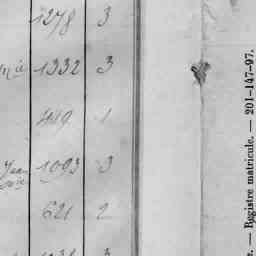 1278 3
1332 3
449 1
Jean 1093 3
621 2
3
e. — Registre matricule. — 201-147-97.